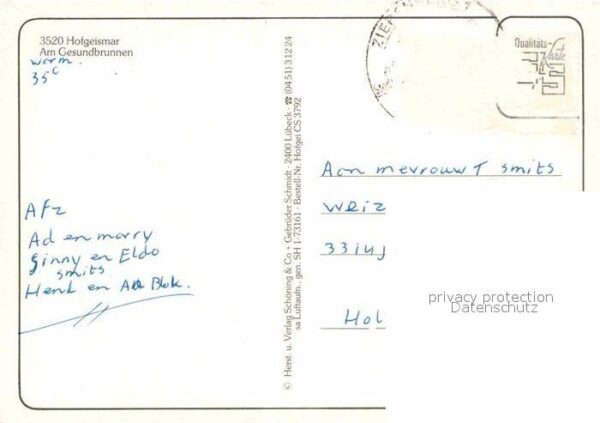 3520 Hofgeismar
Am Gesundbrunnen
warm.
35°C
Afz
Ad en marry
Ginny en Eldo
smits.
Henk en Blok.
© Herst. u. Verlag Schöning & Co + Gebrüder Schmidt · 2400 Lübeck · ☎ (0451) 31224
sa Luftaufn., gen. SH 1-73161 · Bestell-Nr. Hofgei CS 3792
Qualitäts-
Karte
Aan mevrouw T smits
weiz
Hol
privacy protection
Datenschutz